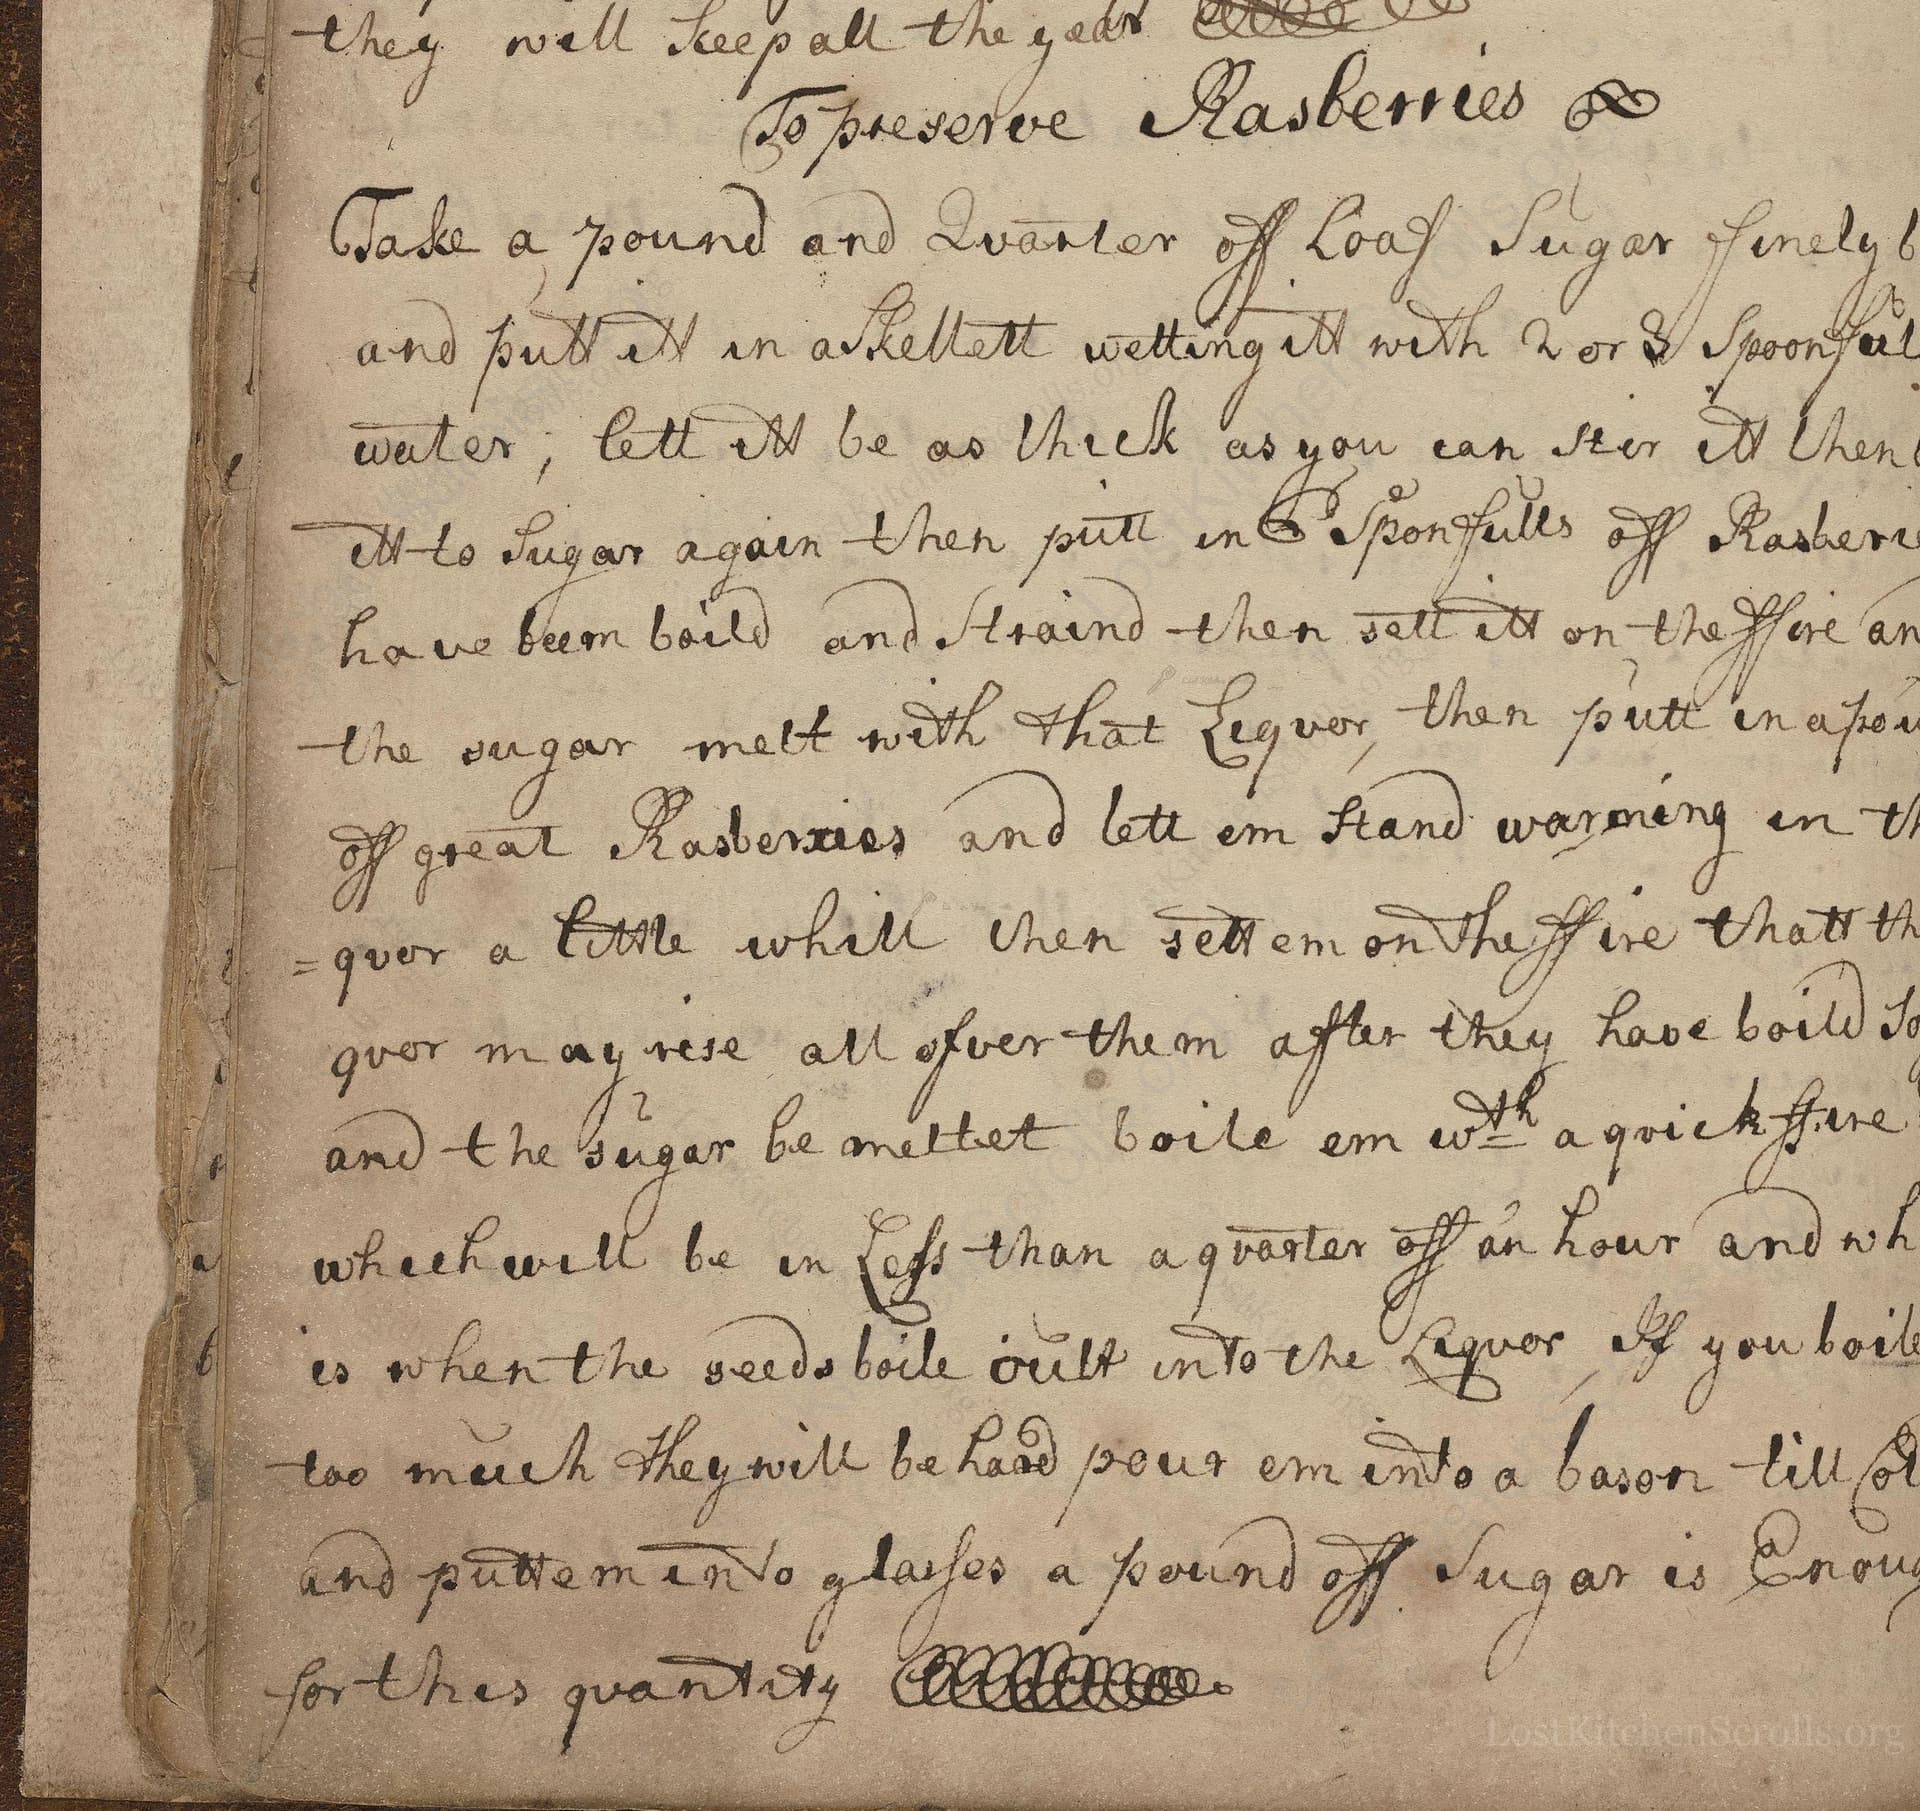 they will keep all the year
To preserve Rasberries
Take a pound and Qvarter off Loaf Sugar ffinely b
and putt itt in a Skellett wetting itt with 2 or 3 Spoonful
water; lett itt be as thick as you can stir itt then
itt to Sugar again then putt in 6 Sponfulls off Rasberie
have beem boild and Straind then sett itt on the ffire an
the sugar melt with that Liqvor, then putt in a pou
off great Rasberries and lett em stand warming in th
=qvor a little whill then sett em on the ffire thatt th
qvor may rise all ofver them after they have boild So
and the sugar be meltet boile em wth a qvick ffire
which will be in Less than a qvarter off an hour and wh
is when the seeds boile outt into the Liqvor, If you boile
too much they will be hard pour em into a bason till Col
and putt em into glasses a pound off Sugar is Enoug
for this qvantity
LostKitchenScrolls.org